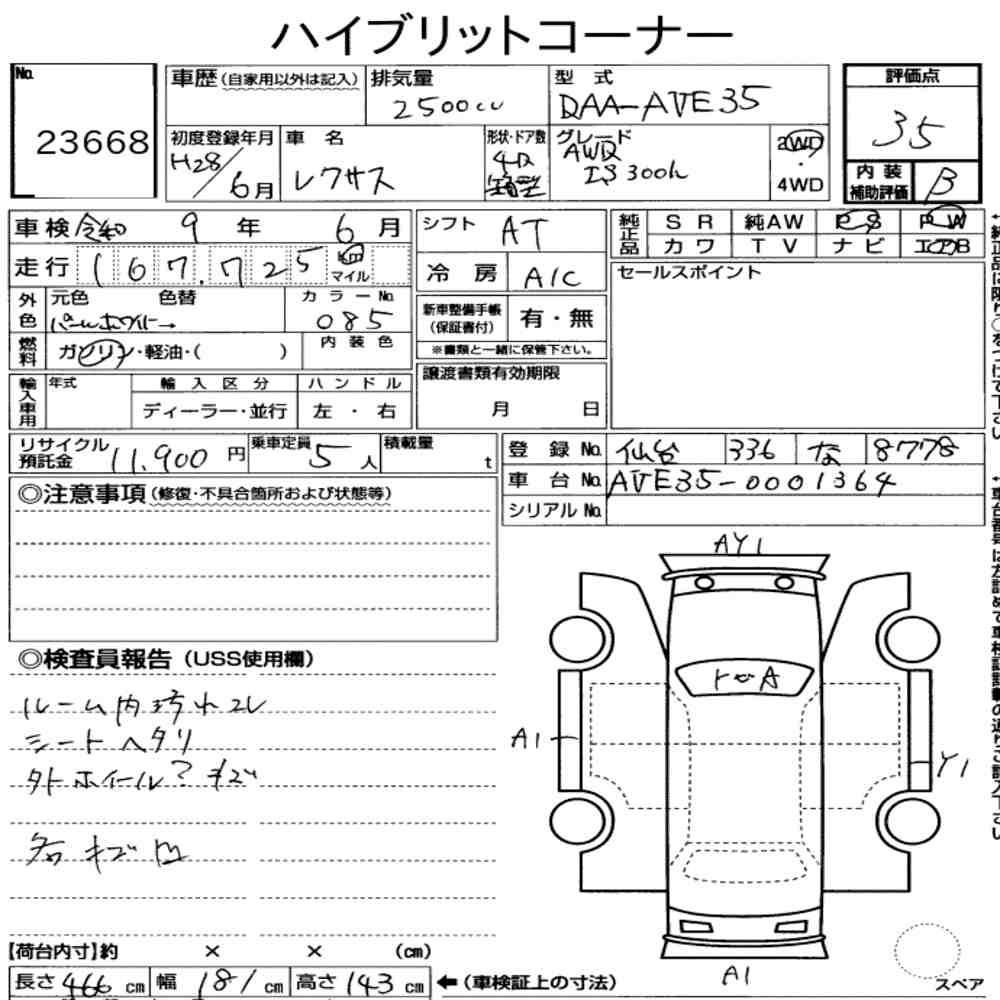 ハイブリットコーナー
No. 23668
車歴(自家用以外は記入)
排気量 2500cc
型式 DAA-AVE35
評価点 35
初度登録年月 H28/6月
車名 レクサス
形状・ドア数 4D
グレード AWD IS300h
2WD・4WD
内装補助評価 B
車検 令和 9年 6月
シフト AT
純正品 SR 純AW PS PW
カワ TV ナビ エアB
走行 167,725 km マイル
冷房 A/C
セールスポイント
外色 元色 色替 カラーNo. 085
パールホワイト→
新車整備手帳(保証書付) 有・無
※書類と一緒に保管下さい。
燃料 ガソリン・軽油・( ) 内装色
輸入車用 年式 輸入区分 ハンドル
ディーラー・並行 左・右
譲渡書類有効期限
月 日
リサイクル預託金 11,900円
乗車定員 5人
積載量 t
登録No. 仙台 336 な 8778
車台No. AVE35-0001364
シリアルNo.
◎注意事項(修復・不具合箇所および状態等)
◎検査員報告(USS使用欄)
ルーム内汚れコレ
シートヘタリ
外ホイール?キズ
各キズ凹
AY1
トビA
A1
Y1
A1
【荷台内寸】約 × × (cm)
長さ 466 cm 幅 181 cm 高さ 143 cm
←(車検証上の寸法)
スペア